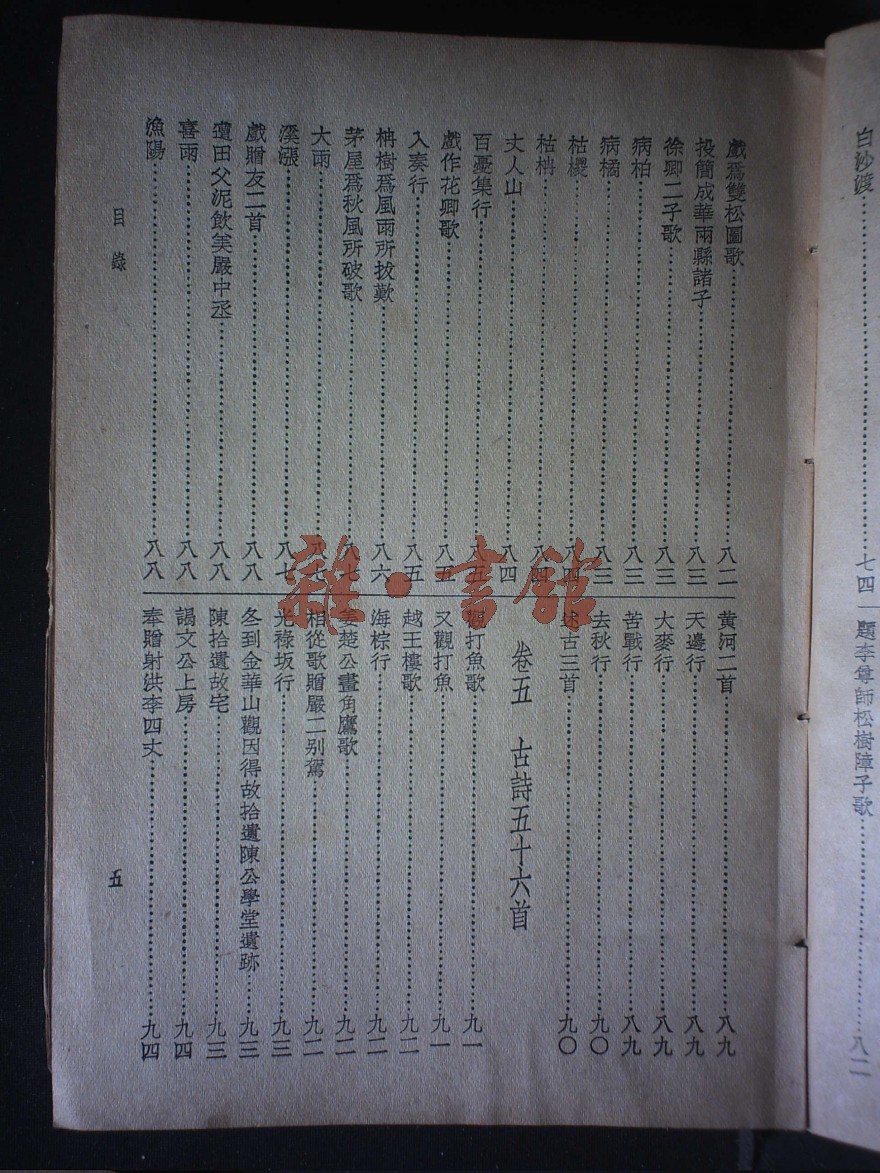 白沙渡……七四
題李尊師松樹障子歌……八二
戲爲雙松圖歌……八二
投簡成華兩縣諸子……八三
徐卿二子歌……八三
病柏……八三
病橘……八三
枯椶……八四
枯柟……八四
丈人山……八四
百憂集行……八五
戲作花卿歌……八五
入奏行……八五
柟樹爲風雨所拔歎……八六
茅屋爲秋風所破歌……八七
大雨……八七
溪漲……八七
戲贈友二首……八八
遭田父泥飲美嚴中丞……八八
喜雨……八八
漁陽……八八
黄河二首……八九
天邊行……八九
大麥行……八九
苦戰行……八九
去秋行……九〇
述古三首……九〇
卷五 古詩五十六首
觀打魚歌……九一
又觀打魚……九一
越王樓歌……九二
海棕行……九二
姜楚公畫角鷹歌……九二
相從歌贈嚴二别駕……九二
光祿坂行……九三
冬到金華山觀因得故拾遺陳公學堂遺跡……九三
陳拾遺故宅……九三
謁文公上房……九四
奉贈射洪李四丈……九四
目錄
五
雜·書館